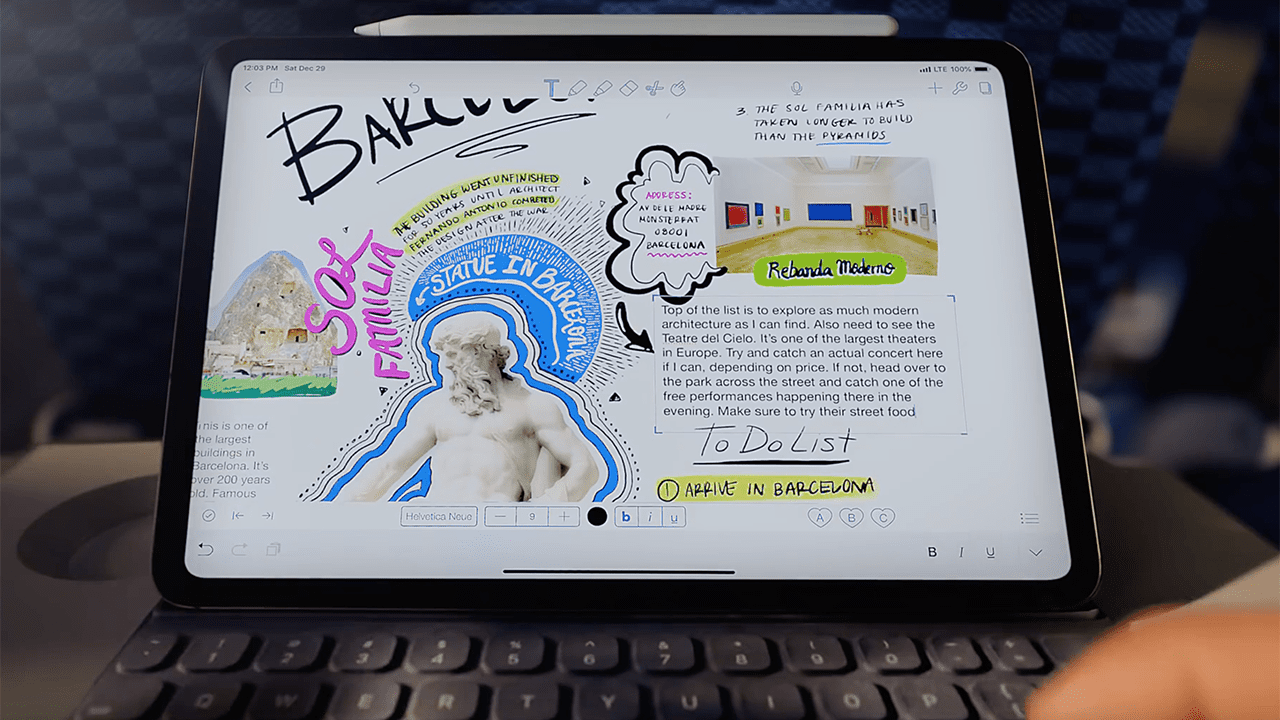 12:03 PM Sat Dec 29
LTE 100%
3. THE SOL FAMILIA HAS
TAKEN LONGER TO BUILD
THAN THE PYRAMIDS
THE BUILDING WENT UNFINISHED
FOR 50 YEARS UNTIL ARCHITECT
FERNANDO ANTONIO COMPLETED
DESIGN AFTER THE WAR
SOL
FAMILIA
STATUE IN BARCELONA
ADDRESS:
AV. DE LE MADRE
MONSTERRAT
08001
BARCELONA
Rebanda Moderno
Top of the list is to explore as much modern
architecture as I can find. Also need to see the
Teatre del Cielo. It's one of the largest theaters
in Europe. Try and catch an actual concert here
if I can, depending on price. If not, head over to
the park across the street and catch one of the
free performances happening there in the
evening. Make sure to try their street food
TO DO LIST
1 ARRIVE IN BARCELONA
This is one of
the largest
buildings in
Barcelona. It's
over 200 years
old. Famous
Helvetica Neue
9
b i u
A B C
B I U
1 2 3 4 5 6 7 8 9 0
Q W E R T Y U I O P